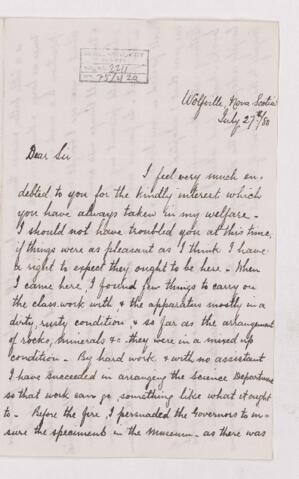 2211
75/4/20
Wolfville, Nova Scotia
July 27th/80
Dear Sir
I feel very much in-
debted to you for the kindly interest which
you have always taken in my welfare -
I should not have troubled you at this time,
if things were as pleasant as I think I have
a right to expect they ought to be here - When
I came here, I found few things to carry on
the class work with, & the apparatus mostly in a
dirty, rusty condition, & so far as the arrangement
of rocks, minerals &c - they were in a mixed up
condition - By hard work & with no assistant
I have succeeded in arranging the Science Department
so that work can go, something like what it ought
to - Before the fire, I persuaded the Governors to in-
sure the specimens in the Museum - as there was